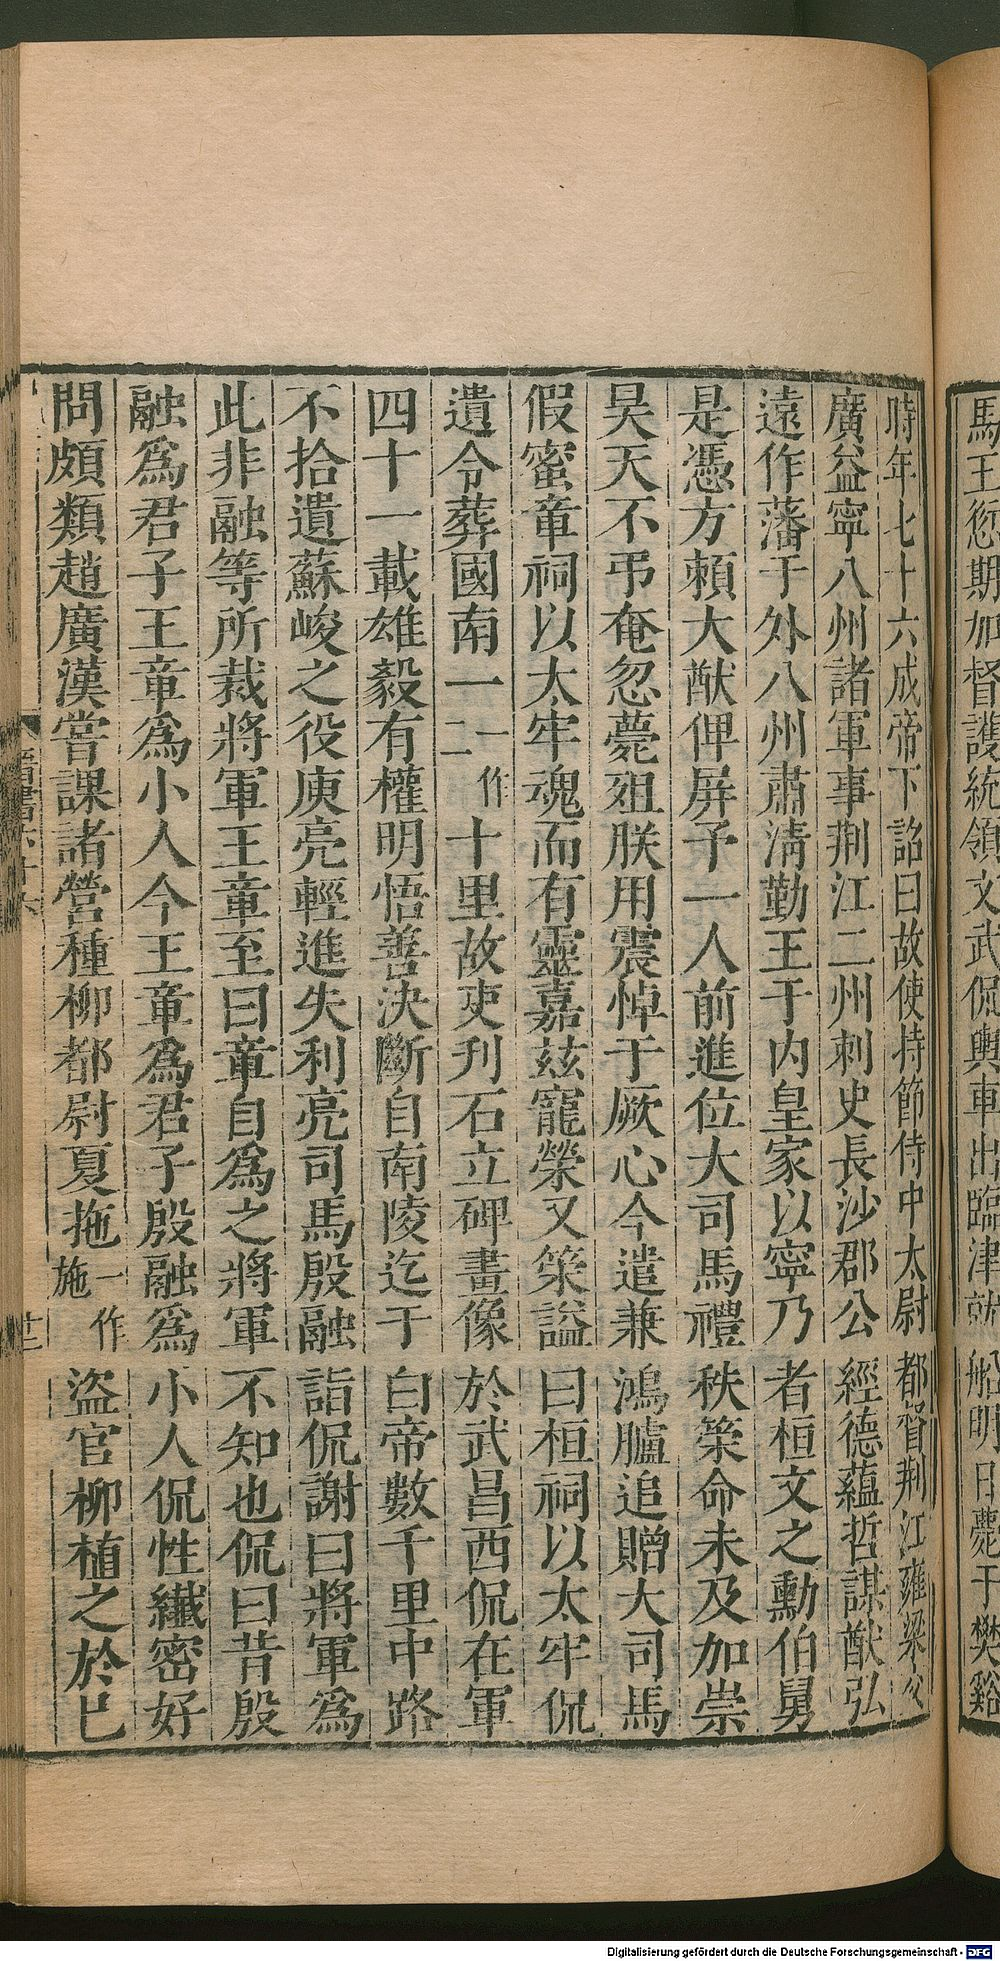 馬王愆期加督護統領文武侃輿車出臨津就船明日薨于樊谿
時年七十六成帝下詔曰故使持節侍中太尉都督荆江雍梁交
廣益寧八州諸軍事荆江二州刺史長沙郡公經德蘊哲謀猷弘
遠作藩于外八州肅淸勤王于内皇家以寧乃者桓文之勳伯舅
是憑方頼大猷俾屏予一人前進位大司馬禮秩策命未及加崇
昊天不弔奄忽薨殂朕用震悼于厥心今遣兼鴻臚追贈大司馬
假蜜章祠以太牢魂而有靈嘉茲寵榮又策謚曰桓祠以太牢侃
遺令葬國南一一作二十里故吏刋石立碑畫像於武昌西侃在軍
四十一載雄毅有權明悟善決斷自南陵迄于白帝數千里中路
不拾遺蘇峻之役庾亮輕進失利亮司馬殷融詣侃謝曰將軍爲
此非融等所裁將軍王章至曰章自爲之將軍不知也侃曰昔殷
融爲君子王章爲小人今王章爲君子殷融爲小人侃性纖密好
問頗類趙廣漢嘗課諸營種柳都尉夏拖一作施盜官柳植之於己
晉書六十六
十三
Digitalisierung gefördert durch die Deutsche Forschungsgemeinschaft - DFG